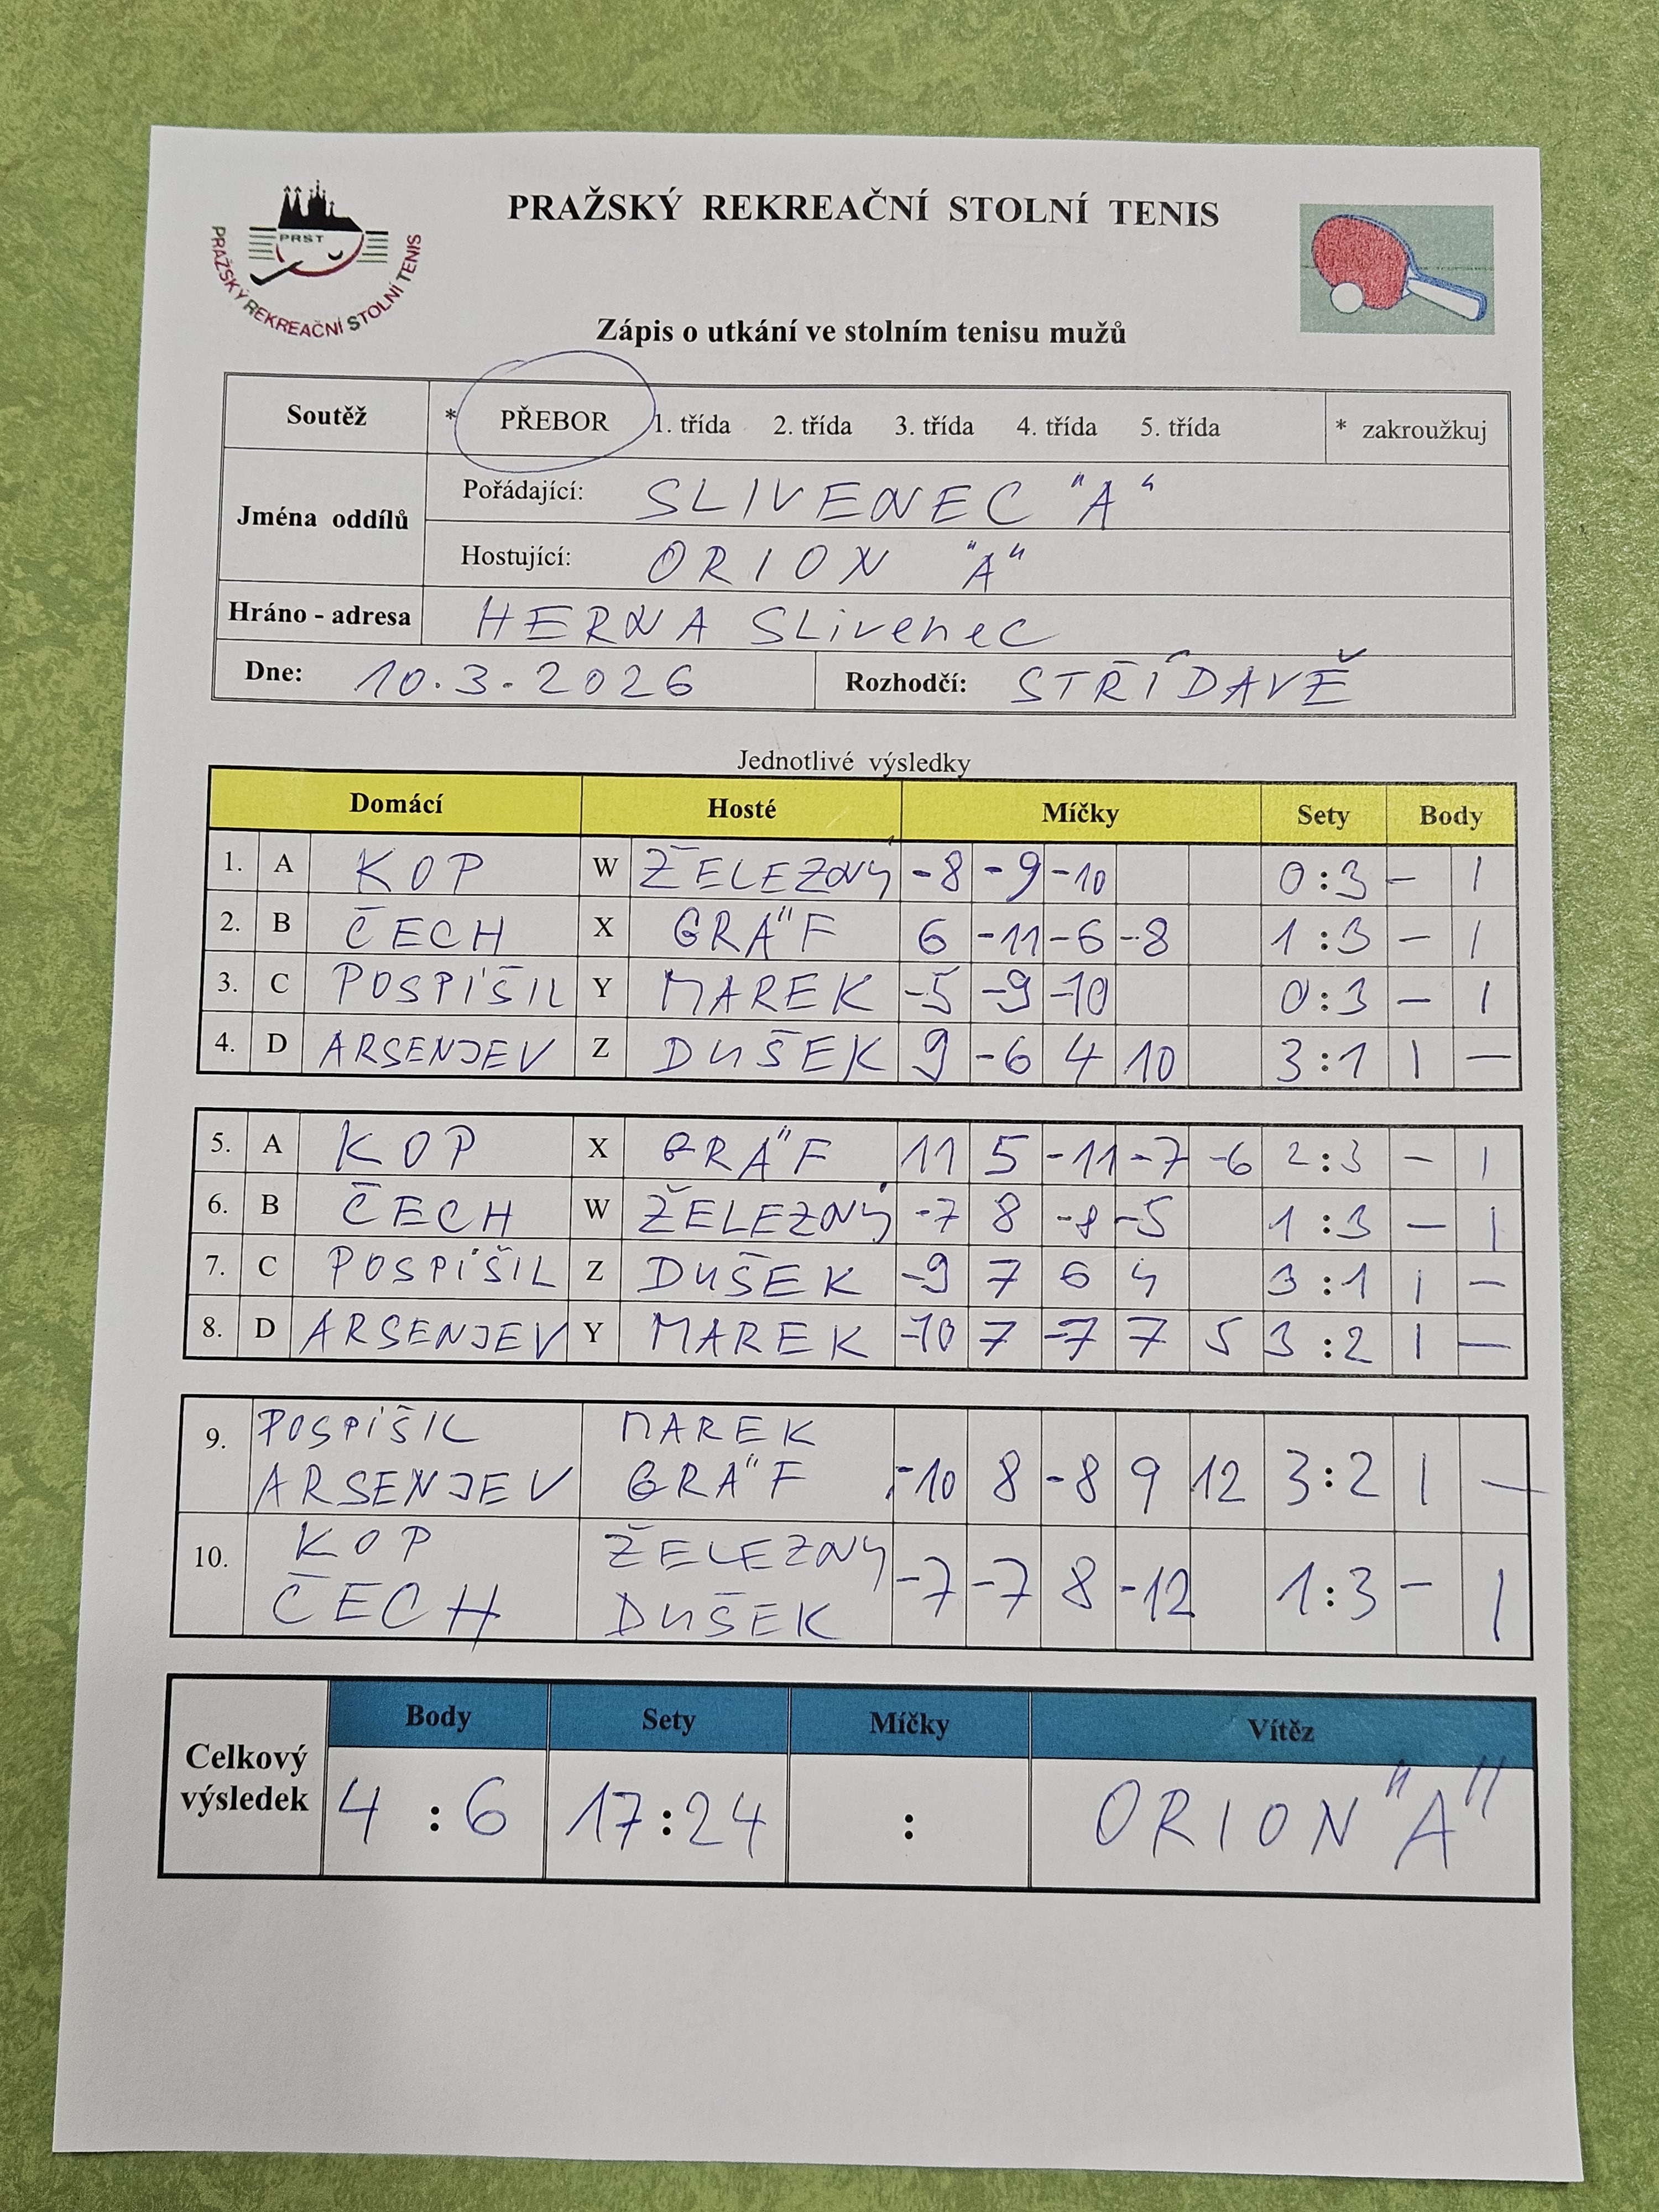 PRST
PRAŽSKÝ REKREAČNÍ STOLNÍ TENIS
PRAŽSKÝ REKREAČNÍ STOLNÍ TENIS
Zápis o utkání ve stolním tenisu mužů
Soutěž * PŘEBOR 1. třída 2. třída 3. třída 4. třída 5. třída * zakroužkuj
Jména oddílů
Pořádající: SLIVENEC "A"
Hostující: ORION "A"
Hráno - adresa HERNA SLivenec
Dne: 10.3.2026 Rozhodčí: STŘÍDAVĚ
Jednotlivé výsledky
Domácí Hosté Míčky Sety Body
1. A KOP W ŽELEZNÝ -8 -9 -10 0:3 - 1
2. B ČECH X GRÄF 6 -11 -6 -8 1:3 - 1
3. C POSPÍŠIL Y MAREK -5 -9 -10 0:3 - 1
4. D ARSENJEV Z DUŠEK 9 -6 4 10 3:1 1 -
5. A KOP X GRÄF 11 5 -11 -7 -6 2:3 - 1
6. B ČECH W ŽELEZNÝ -7 8 -8 -5 1:3 - 1
7. C POSPÍŠIL Z DUŠEK -9 7 6 4 3:1 1 -
8. D ARSENJEV Y MAREK -10 7 -7 7 5 3:2 1 -
POSPÍŠIL MAREK
9. ARSENJEV GRÄF -10 8 -8 9 12 3:2 1 -
KOP ŽELEZNY
10. ČECH DUŠEK -7 -7 8 -12 1:3 - 1
Body Sety Míčky Vítěz
Celkový
výsledek
4 : 6 17:24 : ORION "A"